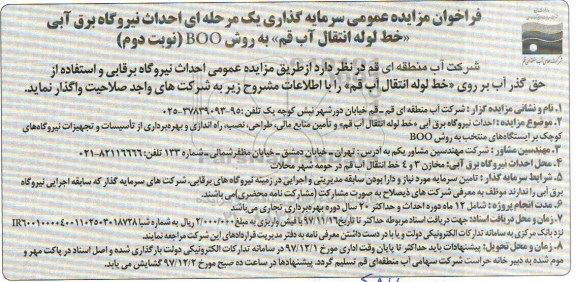 فراخوان مزایده عمومی سرمایه گذاری یک مرحله ای احداث نیروگاه برق آبی
«خط لوله انتقال آب قم» به روش BOO (نوبت دوم)
شرکت آب منطقه ای قم در نظر دارد ازطریق مزایده عمومی احداث نیروگاه برقابی و استفاده از
حق گذر آب بر روی «خط لوله انتقال آب قم» را با اطلاعات مشروح زیر به شرکت های واجد صلاحیت واگذار نماید.
۱- نام و نشانی مزایده گزار: شرکت آب منطقه ای قم-قم خیابان دورشهر نبش کوچه یک تلفن: ۹۵-۳۷۸۳۹۰۹۳-۰۲۵
۲-موضوع مزایده: احداث نیروگاه برق آبی «خط لوله انتقال آب قم» و تأمین منابع مالی، طراحی، نصب، راه اندازی و بهره‌برداری از تأسیسات و تجهیزات نیروگاه‌های
کوچک بر ایستگاه‌های منتخب به روش BOO
۳-مهندس مشاور: شرکت مهندسین مشاور یکم به آدرس: تهران-خیابان دمشق-خیابان مظفر شمالی-شماره ۱۳۳ تلفن: ۸۲۱۱۶۶۶۶-۰۲۱
۴-محل احداث نیروگاه برق آبی: مخازن ۳ و ۴ خط انتقال آب قم در حومه شهر محلات
۵-شرایط سرمایه گذار: تامین سرمایه مورد نیاز و دارا بودن سابقه مدیریتی و اجرایی در زمینه نیروگاه های برقابی. شرکت های سرمایه گذار که سابقه اجرایی نیروگاه
برق آبی را ندارند موظف به معرفی شرکت های ذیصلاح به صورت مشارکت (مشارکت نامه محضری) می باشند.
۶-مدت انجام پروژه: شامل ۱۲ ماه دوره احداث و حداکثر ۲۰ سال دوره بهره‌برداری تجاری می‌باشد.
۷-زمان و محل دریافت اسناد: جهت دریافت اسناد مربوطه حداکثر تا تاریخ ۹۷/۱۱/۱۶ با فیش واریزی به مبلغ ۲/۰۰۰/۰۰۰ ریال به شماره شبا IR۶۰۰۱۰۰۰۰۴۰۰۱۱۰۲۵۰۳۰۱۸۷۲۸
نزد بانک مرکزی به سامانه تدارکات الکترونیکی دولت و یا با در دست داشتن معرفی نامه به دفتر مدیریت قراردادهای این شرکت مراجعه نمایند.
۸-زمان و محل تحویل: پیشنهادات باید حداکثر تا پایان وقت اداری مورخ ۹۷/۱۲/۱ در سامانه تدارکات الکترونیکی دولت بارگذاری شده و اصل اسناد در پاکت مهر و
موم شده به دبیر خانه حراست شرکت سهامی آب منطقه‌ای قم تسلیم گردد. پیشنهادها در ساعت ده صبح مورخ ۹۷/۱۲/۲ گشایش می یابد.